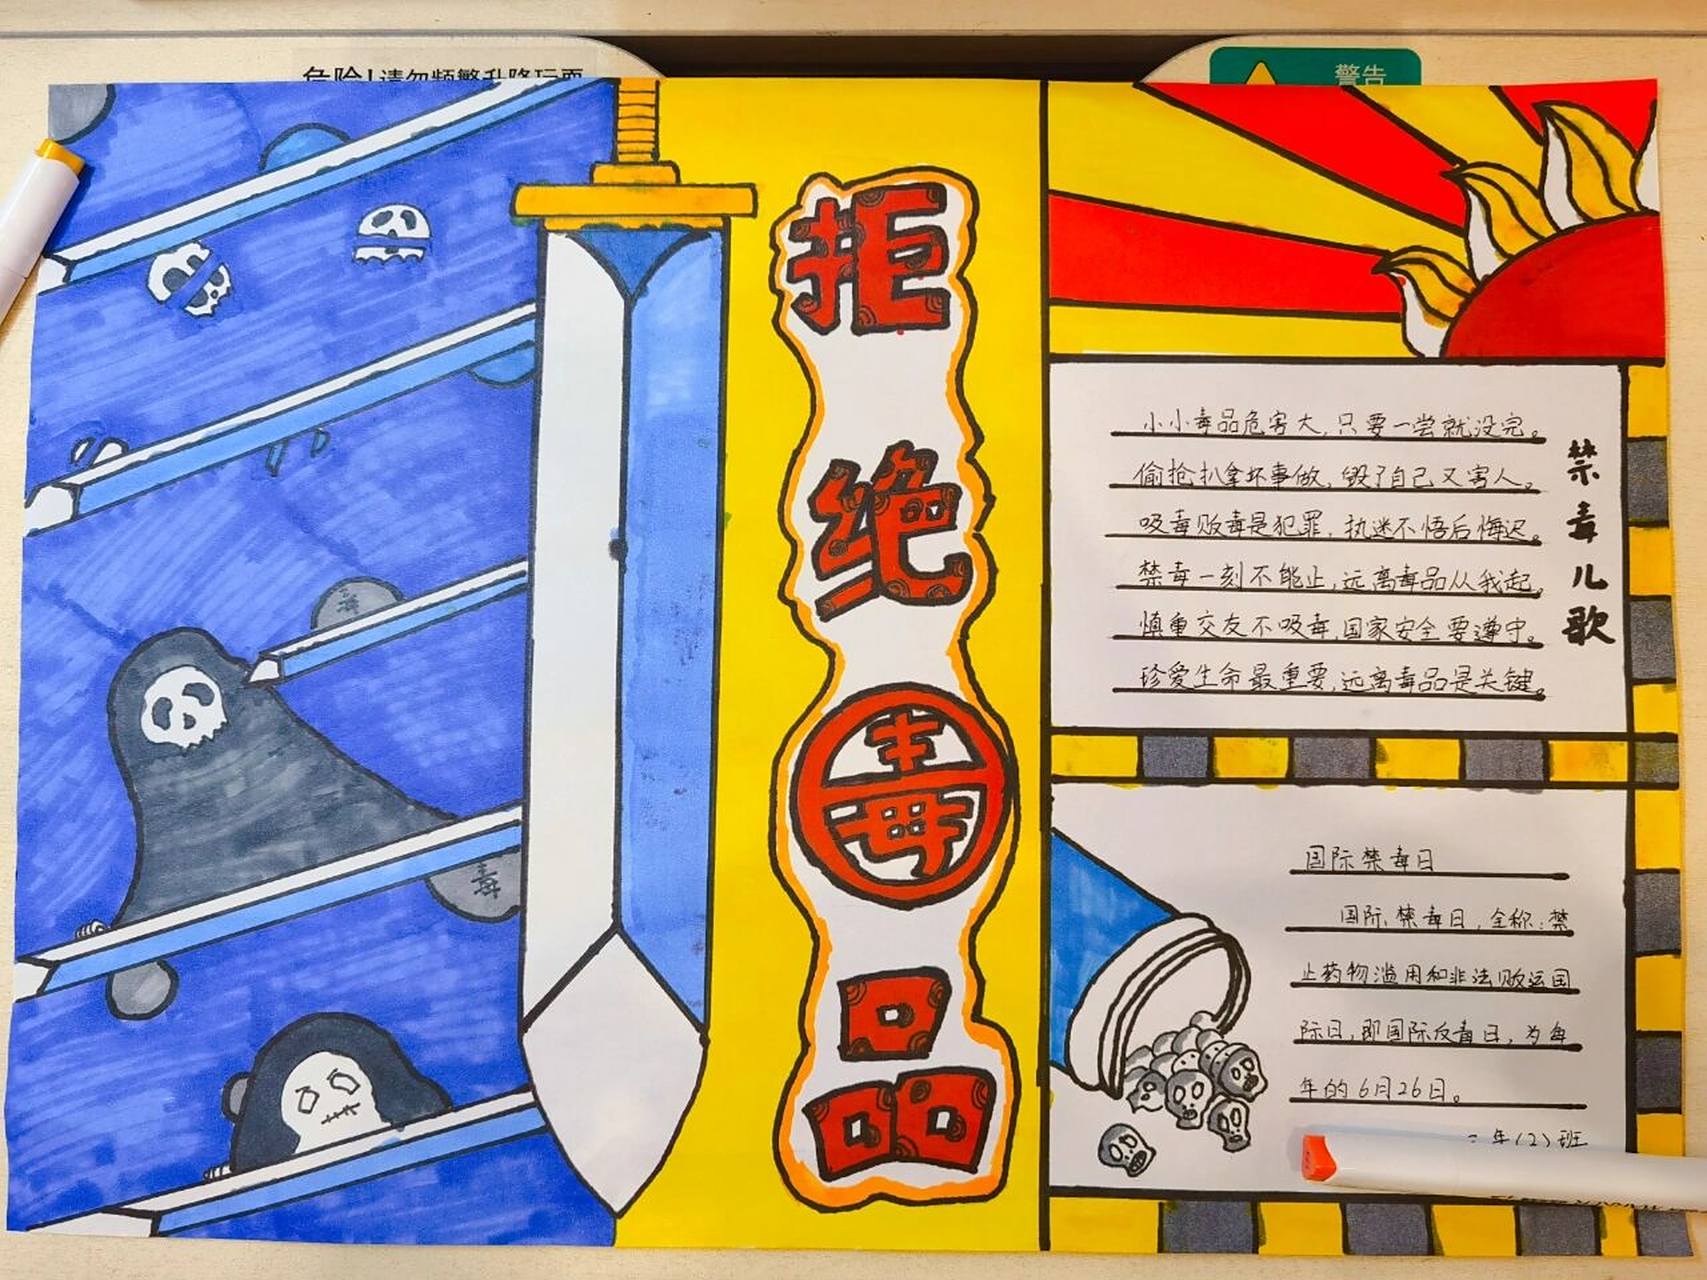 危险!请勿频繁升降玩耍
警告
拒绝毒品
禁毒儿歌
小小毒品危害大,只要一尝就没完。
偷抢扒拿坏事做,毁了自己又害人。
吸毒贩毒是犯罪,执迷不悟后悔迟。
禁毒一刻不能止,远离毒品从我起。
慎重交友不吸毒,国家安全要遵守。
珍爱生命最重要,远离毒品是关键。
毒
毒
国际禁毒日
国际禁毒日,全称:禁
止药物滥用和非法贩运国
际日,即国际反毒日,为每
年的6月26日。
二年(2)班